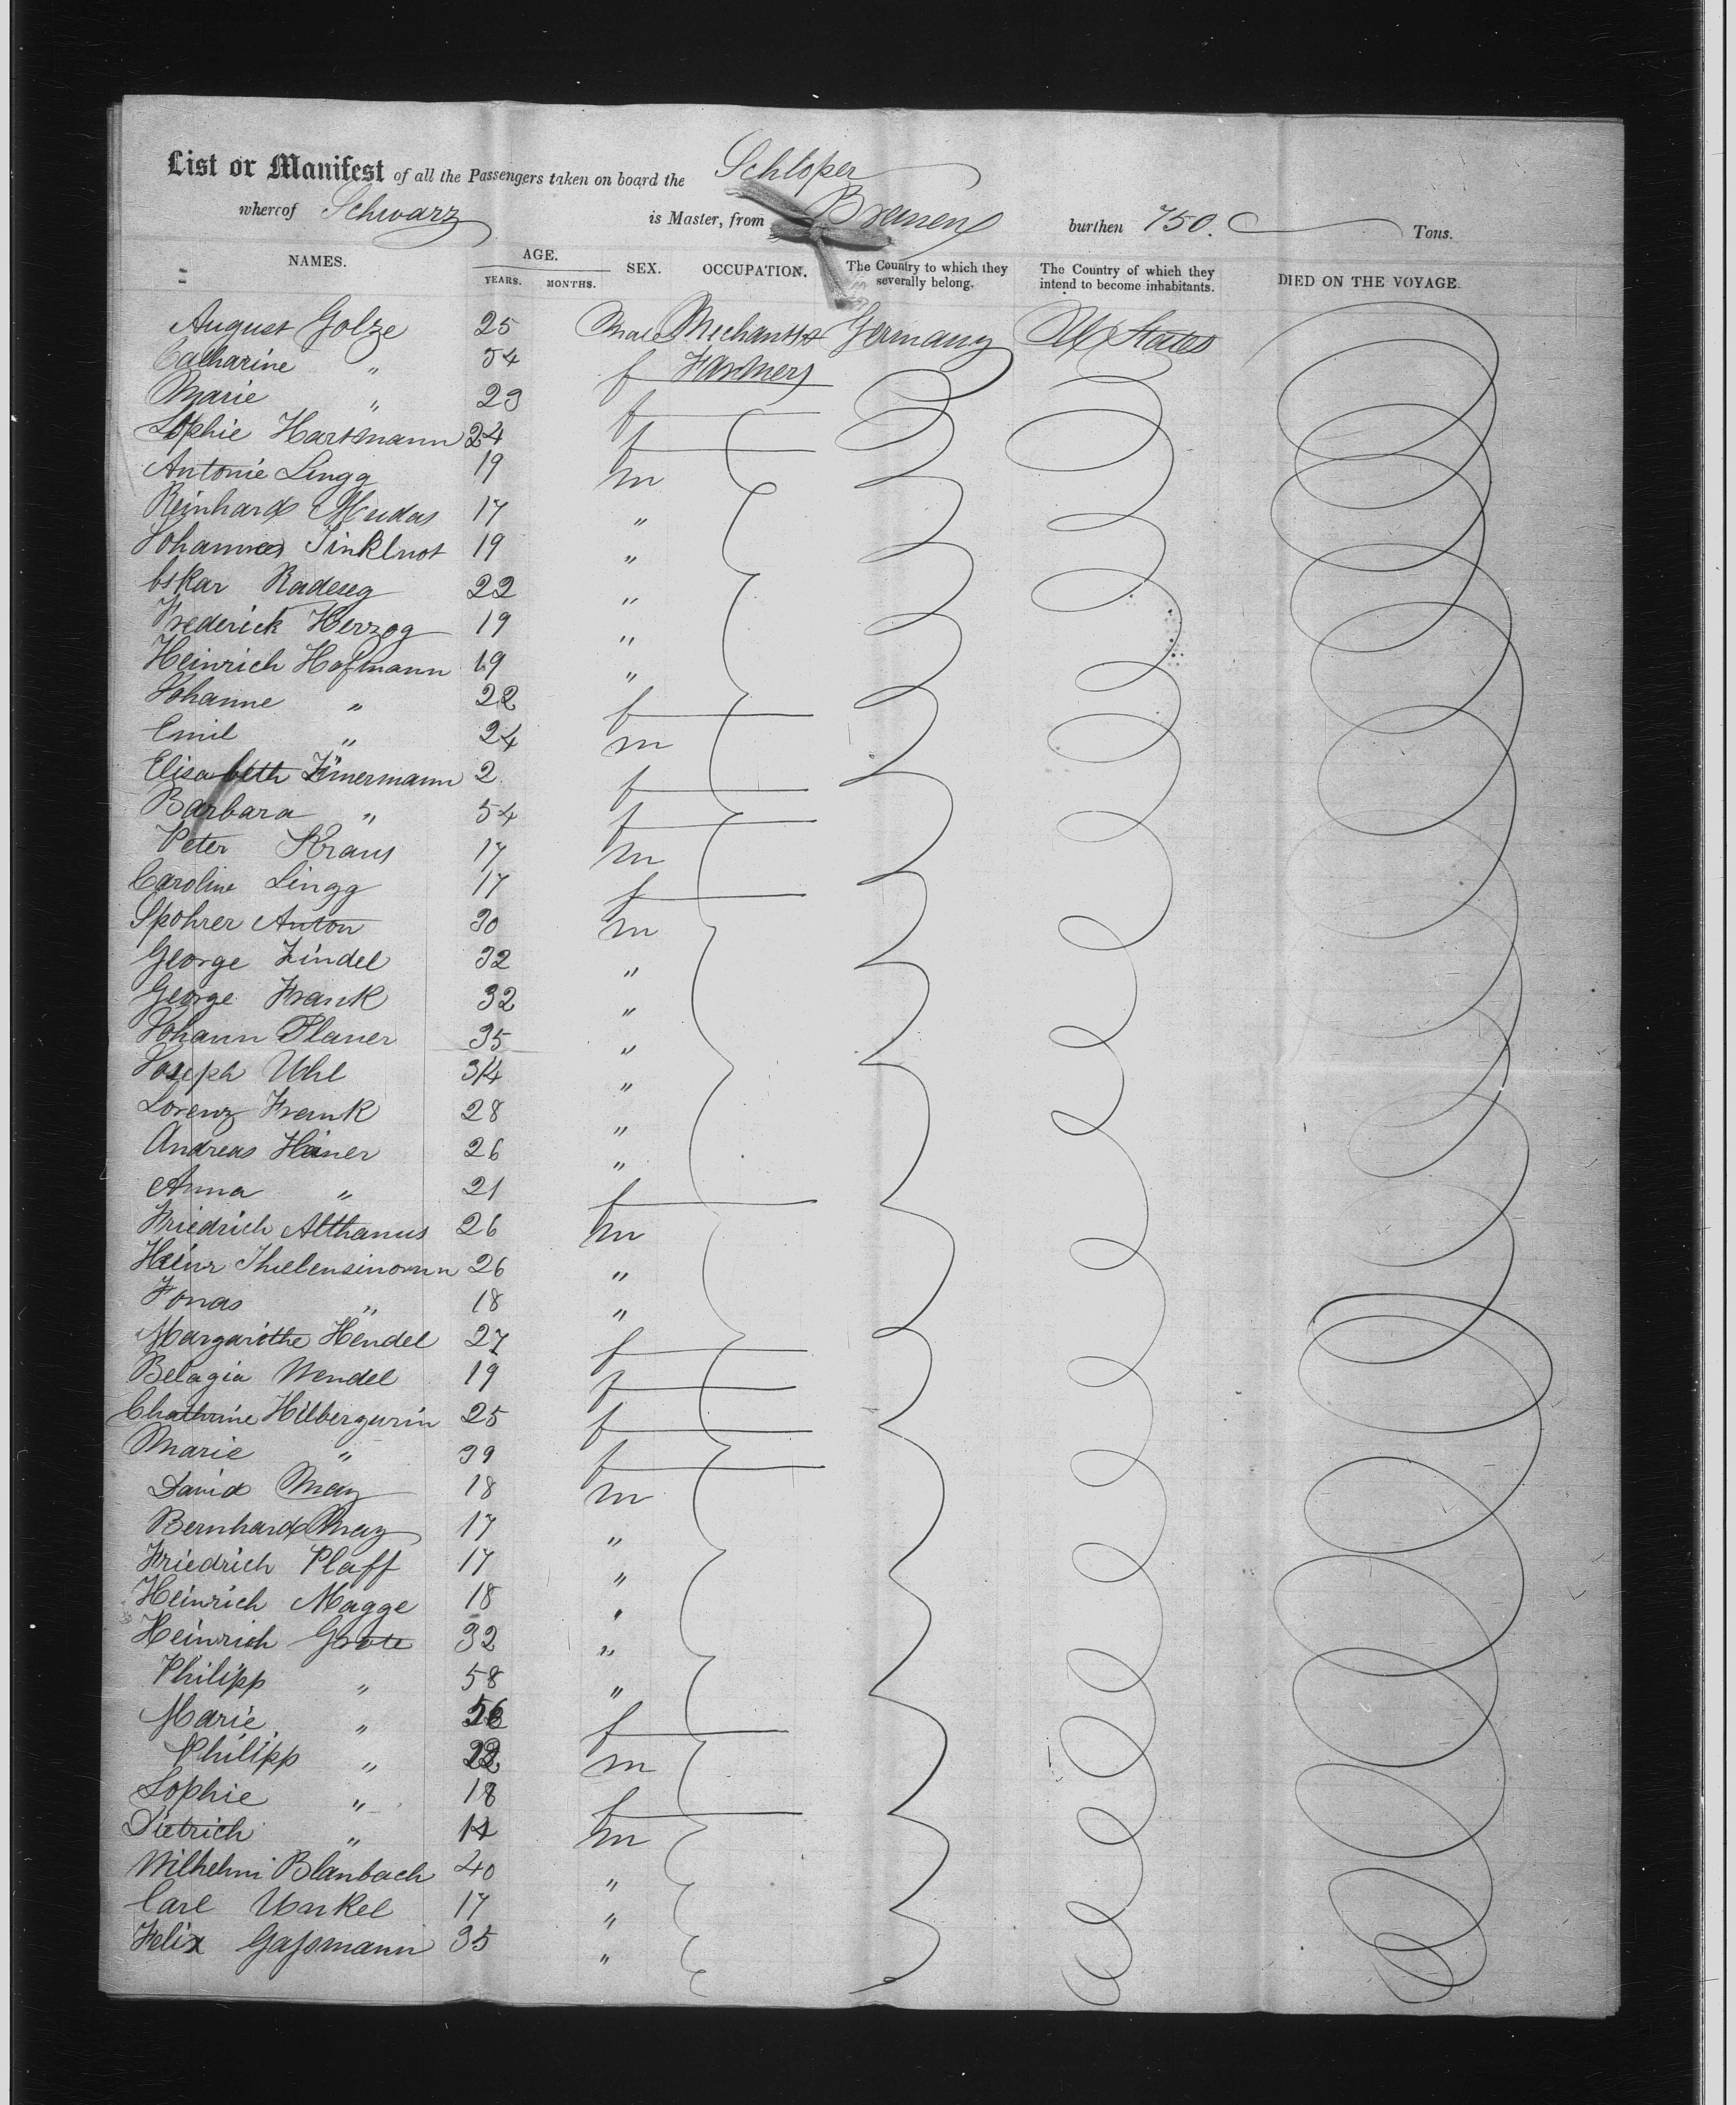 List or Manifest of all the Passengers taken on board the Schloper
whereof Schwarz is Master, from Bremen burthen 750. Tons.
NAMES. AGE. YEARS. MONTHS. SEX. OCCUPATION. The Country to which they severally belong. The Country of which they intend to become inhabitants. DIED ON THE VOYAGE.
August Golze 25 Male Mechanics Germany U States
Catharine " 54 f Farmers
Marie " 23 f
Sophie Hartmann 24 f
Antonie Lingg 19 m
Reinhard Mudas 17 "
Johannes Tinklnot 19 "
Oskar Radeug 22 "
Frederick Herzog 19 "
Heinrich Hofmann 19 "
Johanne " 22 f
Emil " 24 m
Elisabeth Zimermann 2 f
Barbara " 54 f
Peter Kraus 17 m
Caroline Lingg 17 f
Spohrer Anton 30 m
George Zindel 32 "
George Frank 32 "
Johann Planer 35 "
Joseph Uhl 34 "
Lorenz Frank 28 "
Andreas Hainer 26 "
Anna " 21 f
Friedrich Althanus 26 m
Heinr 26 "
Jonas " 18 "
Margarithe Hendel 27 f
Belagia Wendel 19 f
Chathrine Hilbergurin 25 f
Marie " 39 f
David May 18 m
Bernhard May 17 "
Friedrich Plaff 17 "
Heinrich Magge 18 "
Heinrich Grote 32 "
Philipp " 58 "
Marie " 56 f
Philipp " 22 m
Sophie " 18 f
Dietrich " 14 m
Wilhelm Blanbach 40 "
Carl Unkel 17 "
Felix Gassmann 35 "